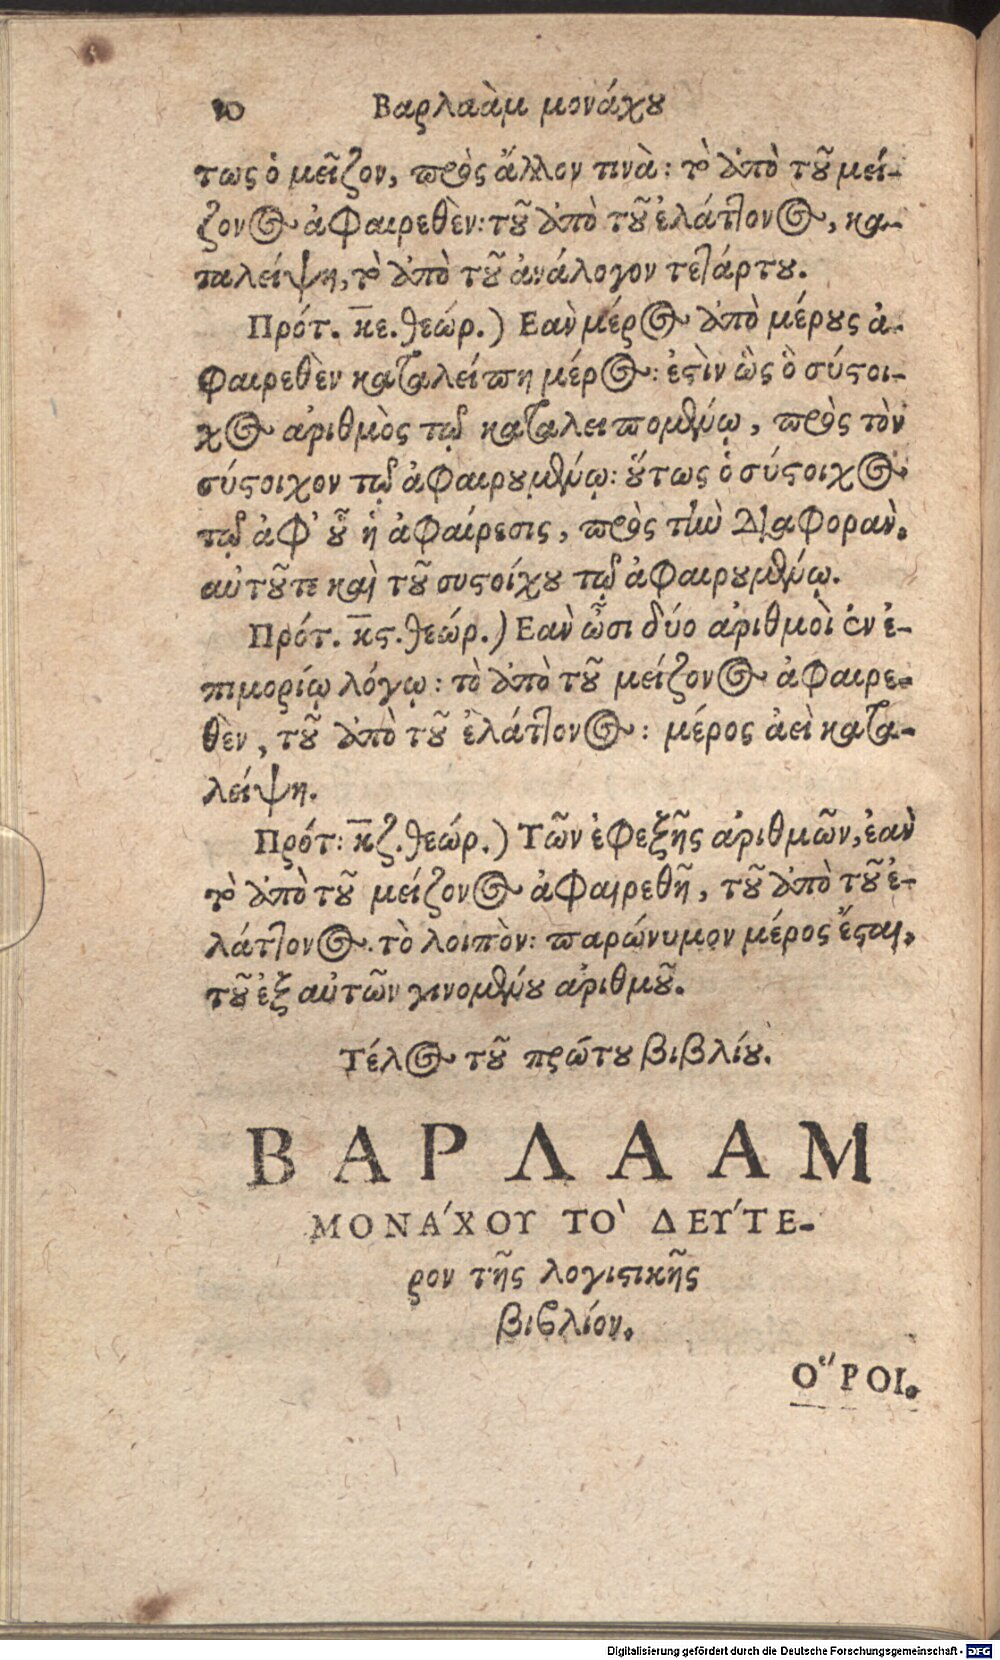 10 Βαρλαὰμ μονάχου
τως ὁ μεῖζον, πρὸς ἄλλον τινὰ: τὸ ἀπὸ τοῦ μεί-
ζονος ἀφαιρεθὲν: τοῦ ἀπὸ τοῦ ἐλάττονος, κα-
ταλείψη, τὸ ἀπὸ τοῦ ἀνάλογον τετάρτου.
Πρότ. κε. θεώρ.) Εαν μέρος ἀπὸ μέρους ἀ-
φαιρεθὲν καταλείπη μέρος: ἐστὶν ὡς ὁ σύστοι-
χος ἀριθμὸς τῷ καταλειπομένῳ, πρὸς τὸν
σύστοιχον τῷ ἀφαιρουμένῳ: οὕτως ὁ σύστοιχος
τῷ ἀφ' οὗ ἡ ἀφαίρεσις, πρὸς τὴν Διαφοραν.
αὐτοῦτε καὶ τοῦ συστοίχου τῷ ἀφαιρουμένῳ.
Πρότ. κϛ. θεώρ.) Εαν ὦσι δύο ἀριθμοὶ ἐν ἐ-
πιμορίῳ λόγῳ: τὸ ἀπὸ τοῦ μείζονος ἀφαιρε-
θὲν, τοῦ ἀπὸ τοῦ ἐλάττονος: μέρος ἀεὶ κατα-
λείψη.
Πρότ: κζ. θεώρ.) Τῶν ἐφεξῆς ἀριθμῶν, ἐαν
τὸ ἀπὸ τοῦ μείζονος ἀφαιρεθῆ, τοῦ ἀπὸ τοῦ ἐ-
λάττονος. τὸ λοιπὸν: παρώνυμον μέρος ἔσται,
τοῦ ἐξ αὐτῶν γινομένου ἀριθμοῦ.
Τέλος τοῦ πρώτου βιβλίου.
ΒΑΡΛΑΑΜ
ΜΟΝΑ΄ΧΟΥ ΤΟ` ΔΕΥ΄ΤΕ-
ρον τῆς λογιστικῆς
βιβλίον.
Ο῞ΡΟΙ.
Digitalisierung gefördert durch die Deutsche Forschungsgemeinschaft - DFG